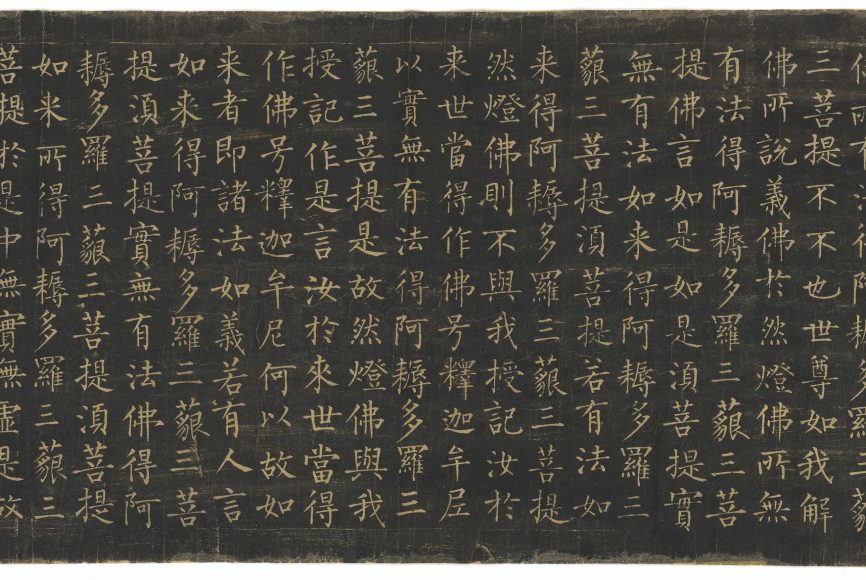 佛所有法得阿耨多羅三藐
三菩提不不也世尊如我解
佛所說義佛於然燈佛所無
有法得阿耨多羅三藐三菩
提佛言如是如是須菩提實
無有法如来得阿耨多羅三
藐三菩提須菩提若有法如
来得阿耨多羅三藐三菩提
然燈佛則不與我授記汝於
来世當得作佛号釋迦牟尼
以實無有法得阿耨多羅三
藐三菩提是故然燈佛與我
授記作是言汝於来世當得
作佛号釋迦牟尼何以故如
来者即諸法如義若有人言
如来得阿耨多羅三藐三菩
提須菩提實無有法佛得阿
耨多羅三藐三菩提須菩提
如来所得阿耨多羅三藐三
菩提於是中無實無虛是故